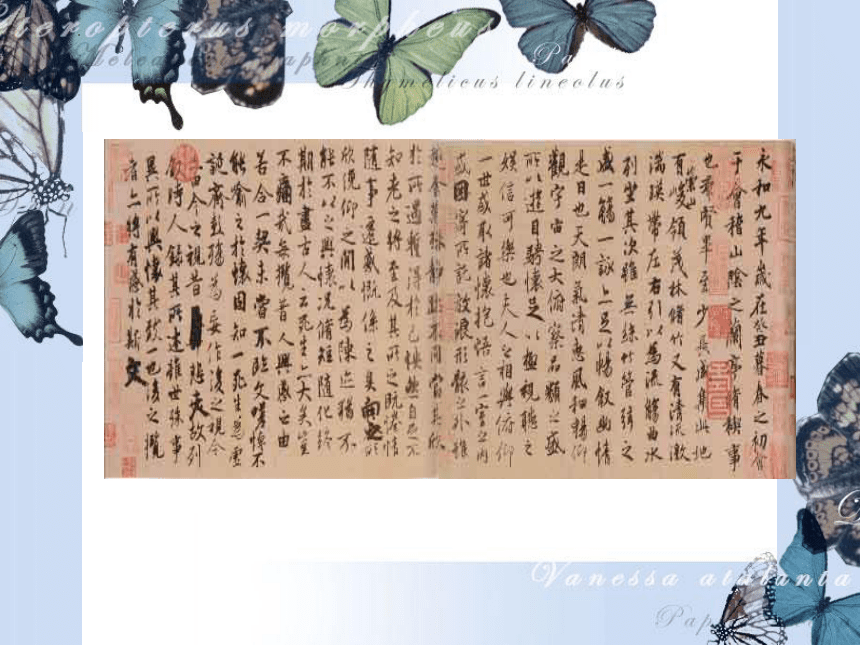 teropterus morpheus
Pa
Thymelicus lineolus
永和九年歲在癸丑暮春之初會
于會稽山陰之蘭亭脩稧事
也群賢畢至少長咸集此地
有崇山峻領茂林脩竹又有清流激
湍暎帶左右引以為流觴曲水
列坐其次雖無絲竹管弦之
盛一觴一詠亦足以暢敘幽情
是日也天朗氣清惠風和暢仰
觀宇宙之大俯察品類之盛
所以遊目騁懷足以極視聽之
娛信可樂也夫人之相與俯仰
一世或取諸懷抱悟言一室之內
或因寄所託放浪形骸之外雖
趣舍萬殊靜躁不同當其欣
於所遇蹔得於己怏然自足不
知老之將至及其所之既惓情
隨事遷感慨係之矣向之所
欣俛仰之閒以為陳迹猶不
能不以之興懷況脩短隨化終
期於盡古人云死生亦大矣豈
不痛哉每攬昔人興感之由
若合一契未嘗不臨文嗟悼不
能喻之於懷固知一死生為虛
誕齊彭殤為妄作後之視今
亦由今之視昔悲夫故列
敘時人錄其所述雖世殊事
異所以興懷其致一也後之攬
者亦將有感於斯文
Vanessa atalanta
Pap